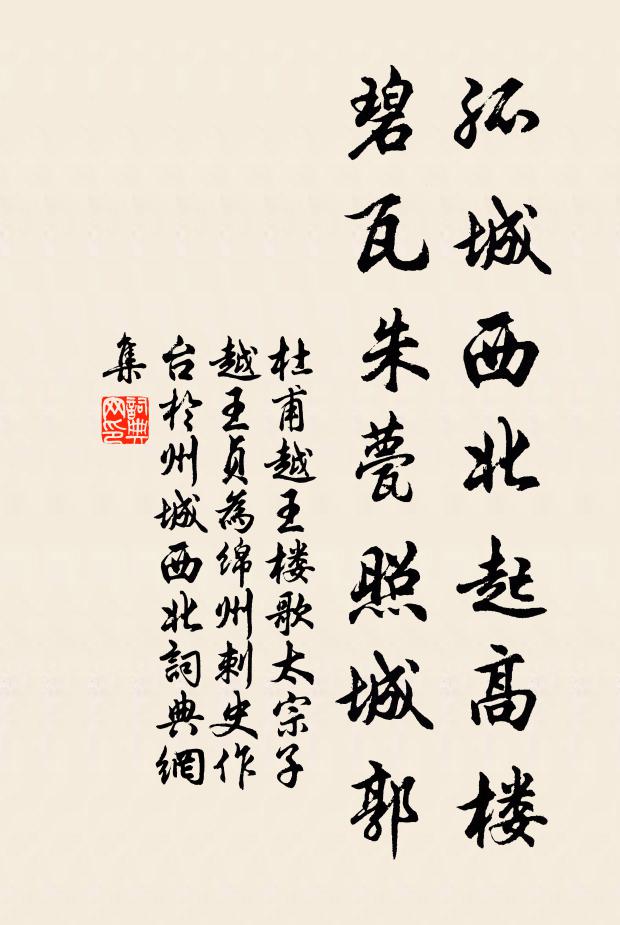 孤城西北起高楼
碧瓦朱甍照城郭
杜甫越王楼歌太宗子
越王貞為绵州刺史作
台於州城西北詞典網
集
詞典
网印